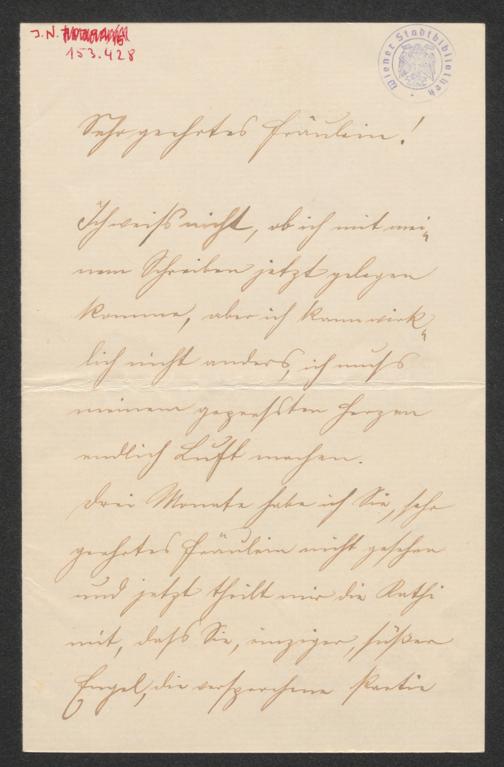 J.N.
153.428
Wiener Stadtbibliothek
Sehr geehrtes Fräulein!
Ich weiß nicht, ob ich mit mei„
nem Schreiben jetzt gelegen
komme, aber ich kann wirk„
lich nicht anders, ich muß
meinem gepreßten Herzen
endlich Luft machen.
Drei Monate habe ich Sie, sehr
geehrtes Fräulein nicht gesehen
und jetzt theilt mir die Kathi
mit, daß Sie, einziger, süßer
Engel, die versprochene Partie